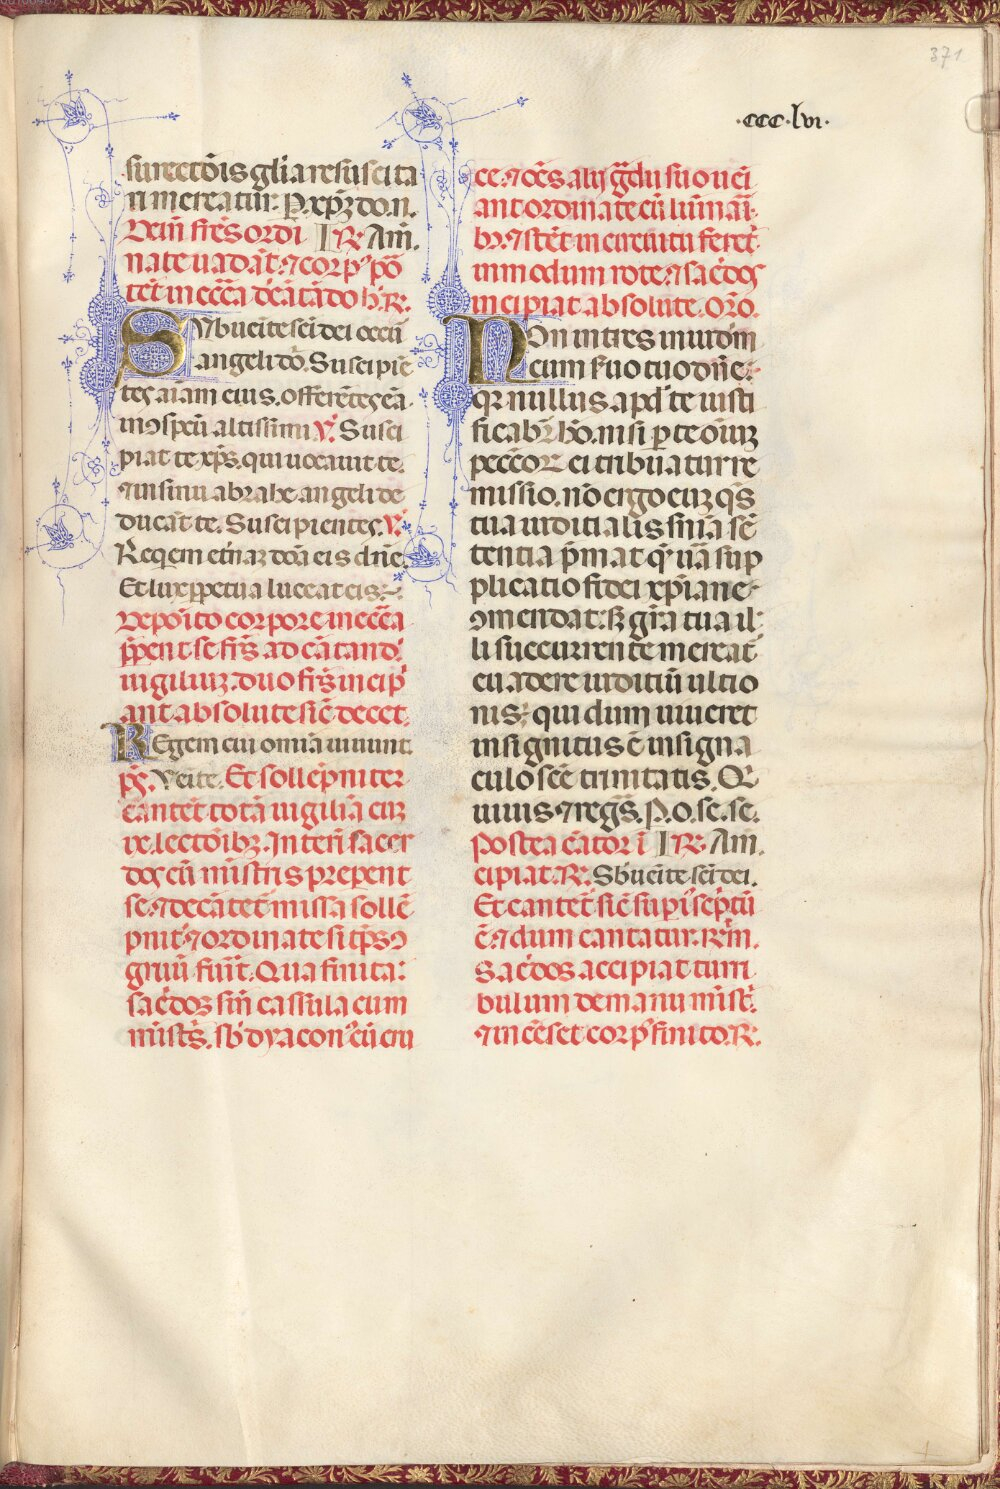 371
·ccc·lvi·
surrectōis glīa resuscita
ri mereatur. P. xp̄ꝫ do. n.
Dein̄ fr̄es ordi ꝶ Am̄.
nate uadāt ⁊ corpꝰ por
tēt in eccā decātādo h̓ ꝶ.
Sbuenite sc̄i dei occū
angeli dō. Suscipiē
tes aīam eius. offerētes eā
in ꝯspcū altissimi ℣. Susci
piat te xp̄s. qui uocauit te.
⁊ in sinu abrahe angeli de
ducāt te. Suscipientes. ℣.
Reqem et̄naꝫ dōa eis dn̄e.
Et lux ꝑpetua luceat eis.
Deposito corpore in eccā
p̄pent se fr̄s ad cātand̄
uigiliaꝫ. duo fr̄s incip̄
ant absolute sic̄ decet.
Regem cui omīa uiuunt.
pṡ. Veīte. Et sollēpniter
cantēt totā uigiliā cuꝫ
ix. lectōibꝫ. Interī sacer
dos cū mīstris prepent
se. ⁊ decātēt missā sollē
pnit̄ ⁊ ordinate si tp̄s ꝯ
gruū fiūt. Qua finita:
sac̄dos sin̄ cassula cum
mīstr̄s. sb̄dyaconꝰ cū cru
ce. ⁊ oēs alij gᵃdu suo uēi
ant ordinate cū lumīai
bꝫ. ⁊ stēt in circuitu feret̄
in modum rote. ⁊ sac̄dos
incipiat absolute. Or̄o.
Non intres in iudm̄
cum s̄uo tuo dn̄e.
qꝛ nullus apd̓ te iusti
ficabr̄ hō. nisi ꝑ te oīuꝫ
peccōꝝ ei tribuatur re
missio. nō ergo euꝫ qs̄
tua iudicialis sn̄ia sē
tentia p̄mat qᵃ uā sup
plicatio fidei xp̄iane
ꝯmendat: sꝫ gr̄a tua il
li succurrente mereat̄
euadere iuditiū ultio
nis. qui dum uiueret
insignitus ē insigna
culo scē trinitatis. Q̄
uiuis ⁊ regs̄. P. o. sc. sc.
Postea cātor ī ꝶ Am̄.
cipiat. ꝶ. Sbuenite sc̄i dei.
Et cantēt sic̄ supiꝰ sc̄ptū
ē. ⁊ dum cantatur. ꝶm̄.
Sac̄dos accipiat turi
bulum de manu mīst̄.
⁊ incēset corpꝰ finito. ꝶ.